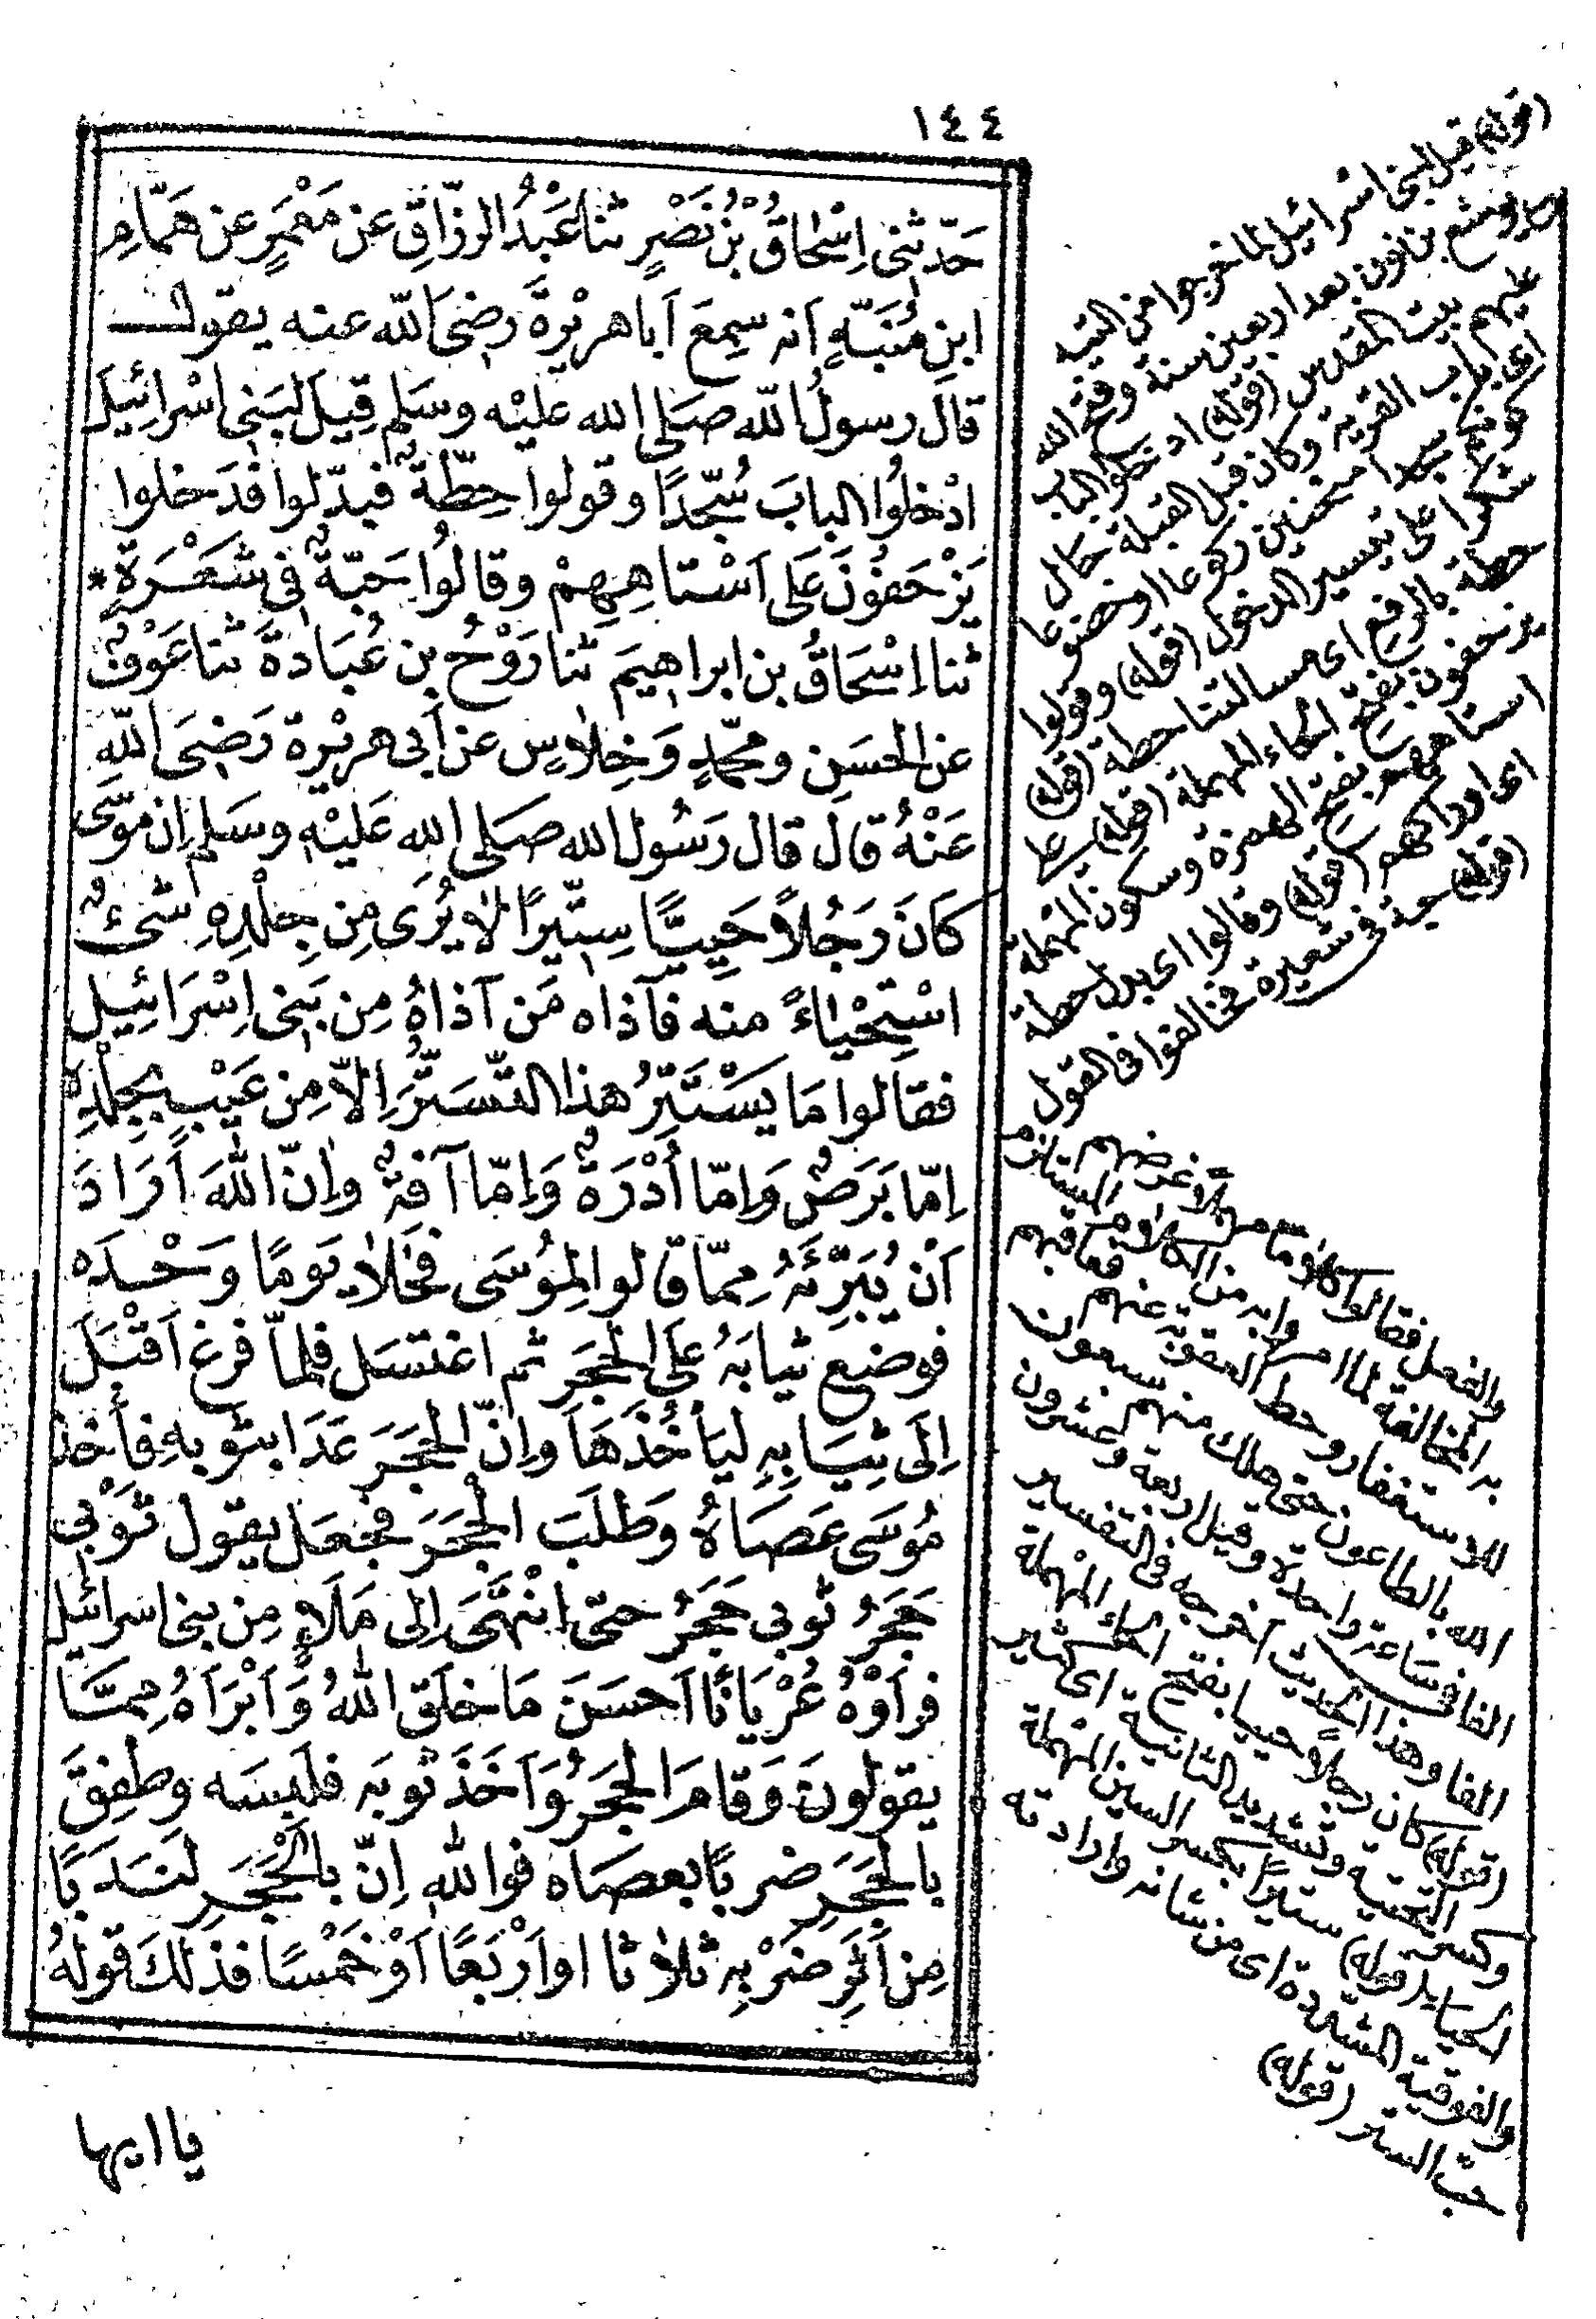 ١٤٤
حَدّثنى اِسْحَاقُ بْنُ نَصْرٍ ثنا عَبْدُ الرزّاقِ عن مَعْمَرٍ عن هَمّامِ
ابنِ مُنَبّهٍ اَنه سمِعَ اَبا هريْرةَ رضىَ الله عنه يقول
قالَ رسولُ الله صَلى الله عليْه وسَلم قِيلَ لبَنِى اسْرائِيلَ
ادْخلُوا البابَ سُجّدًا وقولوا حِطّةٌ فبدّلوا فدَخلوا
يَزْحَفُونَ عَلى اَسْتاهِهِمْ وقالُوا حَبّةٌ فى شَعْرَةٍ *
ثنا اِسْحَاقُ بن ابراهيمَ ثنا رَوْحُ بن عُبَادةَ ثنا عَوْفٌ
عن الحسَنِ ومحمّدٍ وَخِلاسٍ عن اَبى هريْرة رَضىَ اللهِ
عَنْهُ قال قال رَسُول الله صَلى الله عَليْه وسَلم اِن موسَى
كانَ رَجُلاً حَيِيًّا سِتّيرًا لا يُرَى مِن جِلْدِهِ شَىْءٌ
اسْتِحْياءً منه فآذاه مَن آذاهُ مِن بَنِى اِسْرَائِيل
فقالوا مَا يَسْتَتِرُ هذا التّسَتُّرَ اِلاّ مِن عَيْبٍ بجِلْدِهِ
اِمّا بَرَصٌ وَاِمّا أُدْرَةٌ وَاِمّا آفةٌ واِنّ اللهَ اَرَادَ
اَنْ يُبَرِّئَهُ مِمّا قالوا لِمُوسَى فَخَلا يَومًا وَحْدَه
فوضع ثيابَهُ عَلَى الحَجَرِ ثم اغتسَل فلمّا فرغ اَقْبَلَ
اِلَى ثِيَابِهِ لِيَأخُذَهَا وَاِنّ الحَجَرَ عَدَا بثَوْبهِ فأخذ
مُوسَى عَصَاهُ وَطَلَبَ الحَجَرَ فجعَل يقول ثَوْبى
حَجَرُ ثوبى حَجَرُ حتى انْتَهَى اِلى مَلَاٍ مِن بنى اسرائيل
فرَاَوْهُ عُرْيَانًا اَحسَنَ مَا خلَق اللهُ وَاَبْرَاَهُ مِمَّا
يقولونَ وَقامَ الحَجَرُ وَاَخَذَ ثوبَه فلَبِسَه وطَفِقَ
بالحَجَرِ ضربًا بعصَاه فوالله اِنّ بالحَجَرِ لنَدَبًا
مِن اَثَرِ ضَرْبِهِ ثلاثا او اَرْبَعًا اَوْ خَمْسًا فذلكَ قولهُ
يا ايها
(قوله) قيل لبنى اسرائيل لما خرجوا من التيه
مع يوشع بن نون بعد اربعين سنة وفتح الله
عليهم بيت المقدس (قوله) ادخلوا الباب
اى باب القرية وكان قبل القبلة حال
كونكم سجدا منحنين ركوعا او خضوعا
شكرا على تيسير الدخول (قوله) وقولوا
حطة بالرفع اى مسالتنا حطة (قوله)
يزحفون بفتح الحاء المهملة (قوله) على
استاههم بفتح الهمزة وسكون المهملة
اى اوراكهم (قوله) وقالوا اى بدل حطة
(قوله) حبة فى شعيرة فخالفوا فى القول
والفعل فقالوا كلاما مهملا غرضهم
به المخالفة لما امروا به من الكلام المستلزم
للاستغفار وحط العقوبة عنهم فعاقبهم
الله بالطاعون حتى هلك منهم سبعون
الفا فى ساعة واحدة وقيل اربعة وعشرون
الفا وهذا الحديث اخرجه فى التفسير
(قوله) كان رجلا حييا بفتح الحاء المهملة
وكسر التحتية وتشديد الثانية اى كثير
الحياء (قوله) ستيرا بكسر السين المهملة
والفوقية المشددة اى من شانه وارادته
حب الستر (قوله)